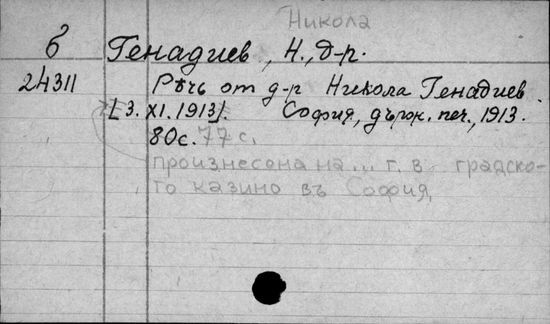 Никола
б Генадиев, Н., д-р.
24311 Рѣчь от д-р Никола Генадиев
[3. XI. 1913]. София, държ. печ., 1913.
80с. 77 с.
произнесена на ... г. в градско-
то казино въ София,